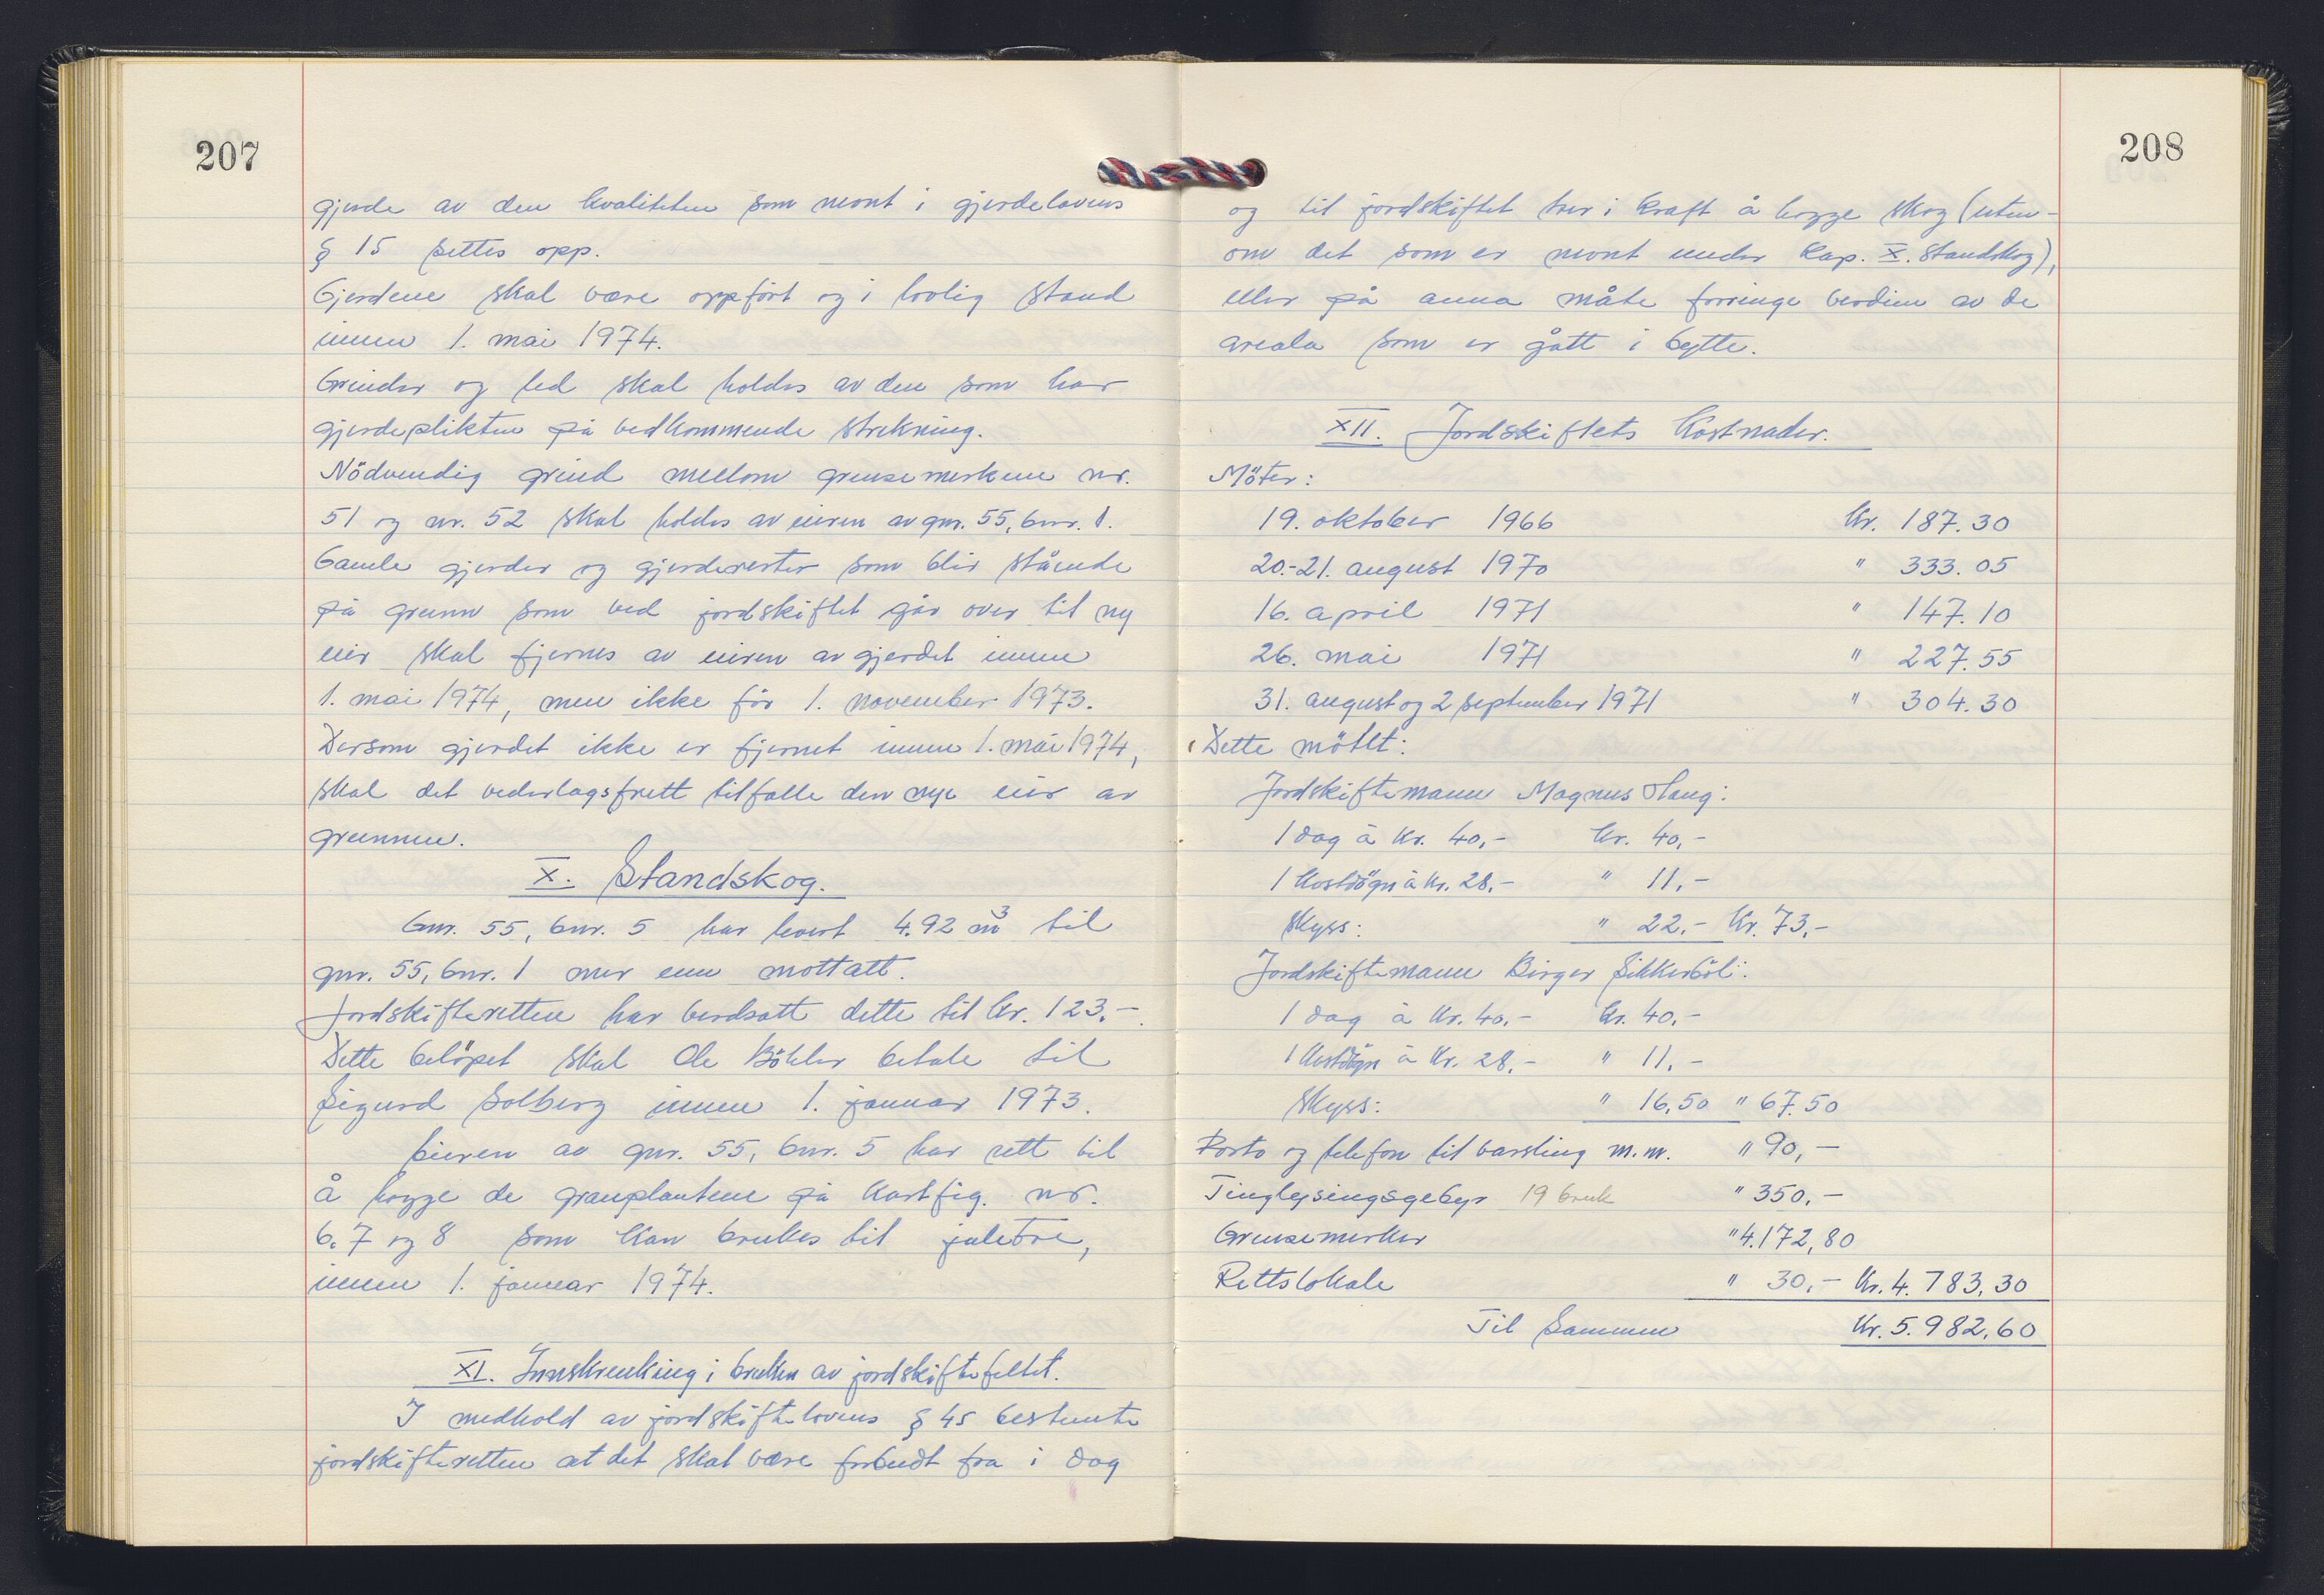 207
gjerde av den kvaliteten som nevnt i gjerdelovens
§ 15 settes opp.
Gjerdene skal være oppført og i lovlig stand
innen 1. mai 1974.
Grinder og led skal holdes av den som har
gjerdeplikten på vedkommende strekning.
Nödvendig grind mellom grensemerkene nr.
51 og nr. 52 skal holdes av eieren av gnr. 55, bnr. 1.
Gamle gjerder og gjerderester som blir stående
på grunn som ved jordskiftet går over til ny
eier skal fjernes av eieren av gjerdet innen
1. mai 1974, men ikke för 1. november 1973.
Dersom gjerdet ikke er fjernet innen 1. mai 1974,
skal det vederlagsfritt tilfalle den nye eier av
grunnen.
X. Standskog.
Gnr. 55, bnr. 5 har levert 4.92 m³ til
gnr. 55, bnr. 1 mer enn mottatt.
Jordskifteretten har verdsatt dette til kr. 123.-.
Dette belöpet skal Ole Böhler betale til
Sigurd Solberg innen 1. januar 1973.
Eieren av gnr. 55, bnr. 5 har rett til
å hogge de granplantene på kartfig. nr.
6. 7 og 8 som kan brukes til juletre,
innen 1. januar 1974.
XI. Innskrenking i bruken av jordskiftefeltet.
I medhold av jordskiftelovens § 45 bestemte
jordskifteretten at det skal være forbudt fra i dag
208
og til jordskiftet trer i kraft å hogge skog (uten-
om det som er nevnt under kap. X. Standskog),
eller på anna måte forringe verdien av de
areala som er gått i bytte.
XII. Jordskiftets Kostnader.
Möter:
19. oktober 1966 Kr. 187.30
20.-21. august 1970 " 333.05
16. april 1971 " 147.10
26. mai 1971 " 227.55
31. august og 2 september 1971 " 304.30
Dette mötet:
Jordskiftemann Magnus Haug:
1 dag à kr. 40,- kr. 40,-
1 kostdögn à kr. 28,- " 11,-
Skyss: " 22.- Kr. 73,-
Jordskiftemann Birger Sikkerböl:
1 dag à kr. 40,- kr. 40,-
1 kostdögn à kr. 28,- " 11,-
Skyss: " 16,50 " 67.50
Porto og telefon til varsling m.m. " 90,-
Tinglysingsgebyr 19 bruk " 350,-
Grensemerker " 4.172,80
Rettslokale " 30,- Kr. 4.783,30
Til Sammen Kr. 5.982,60